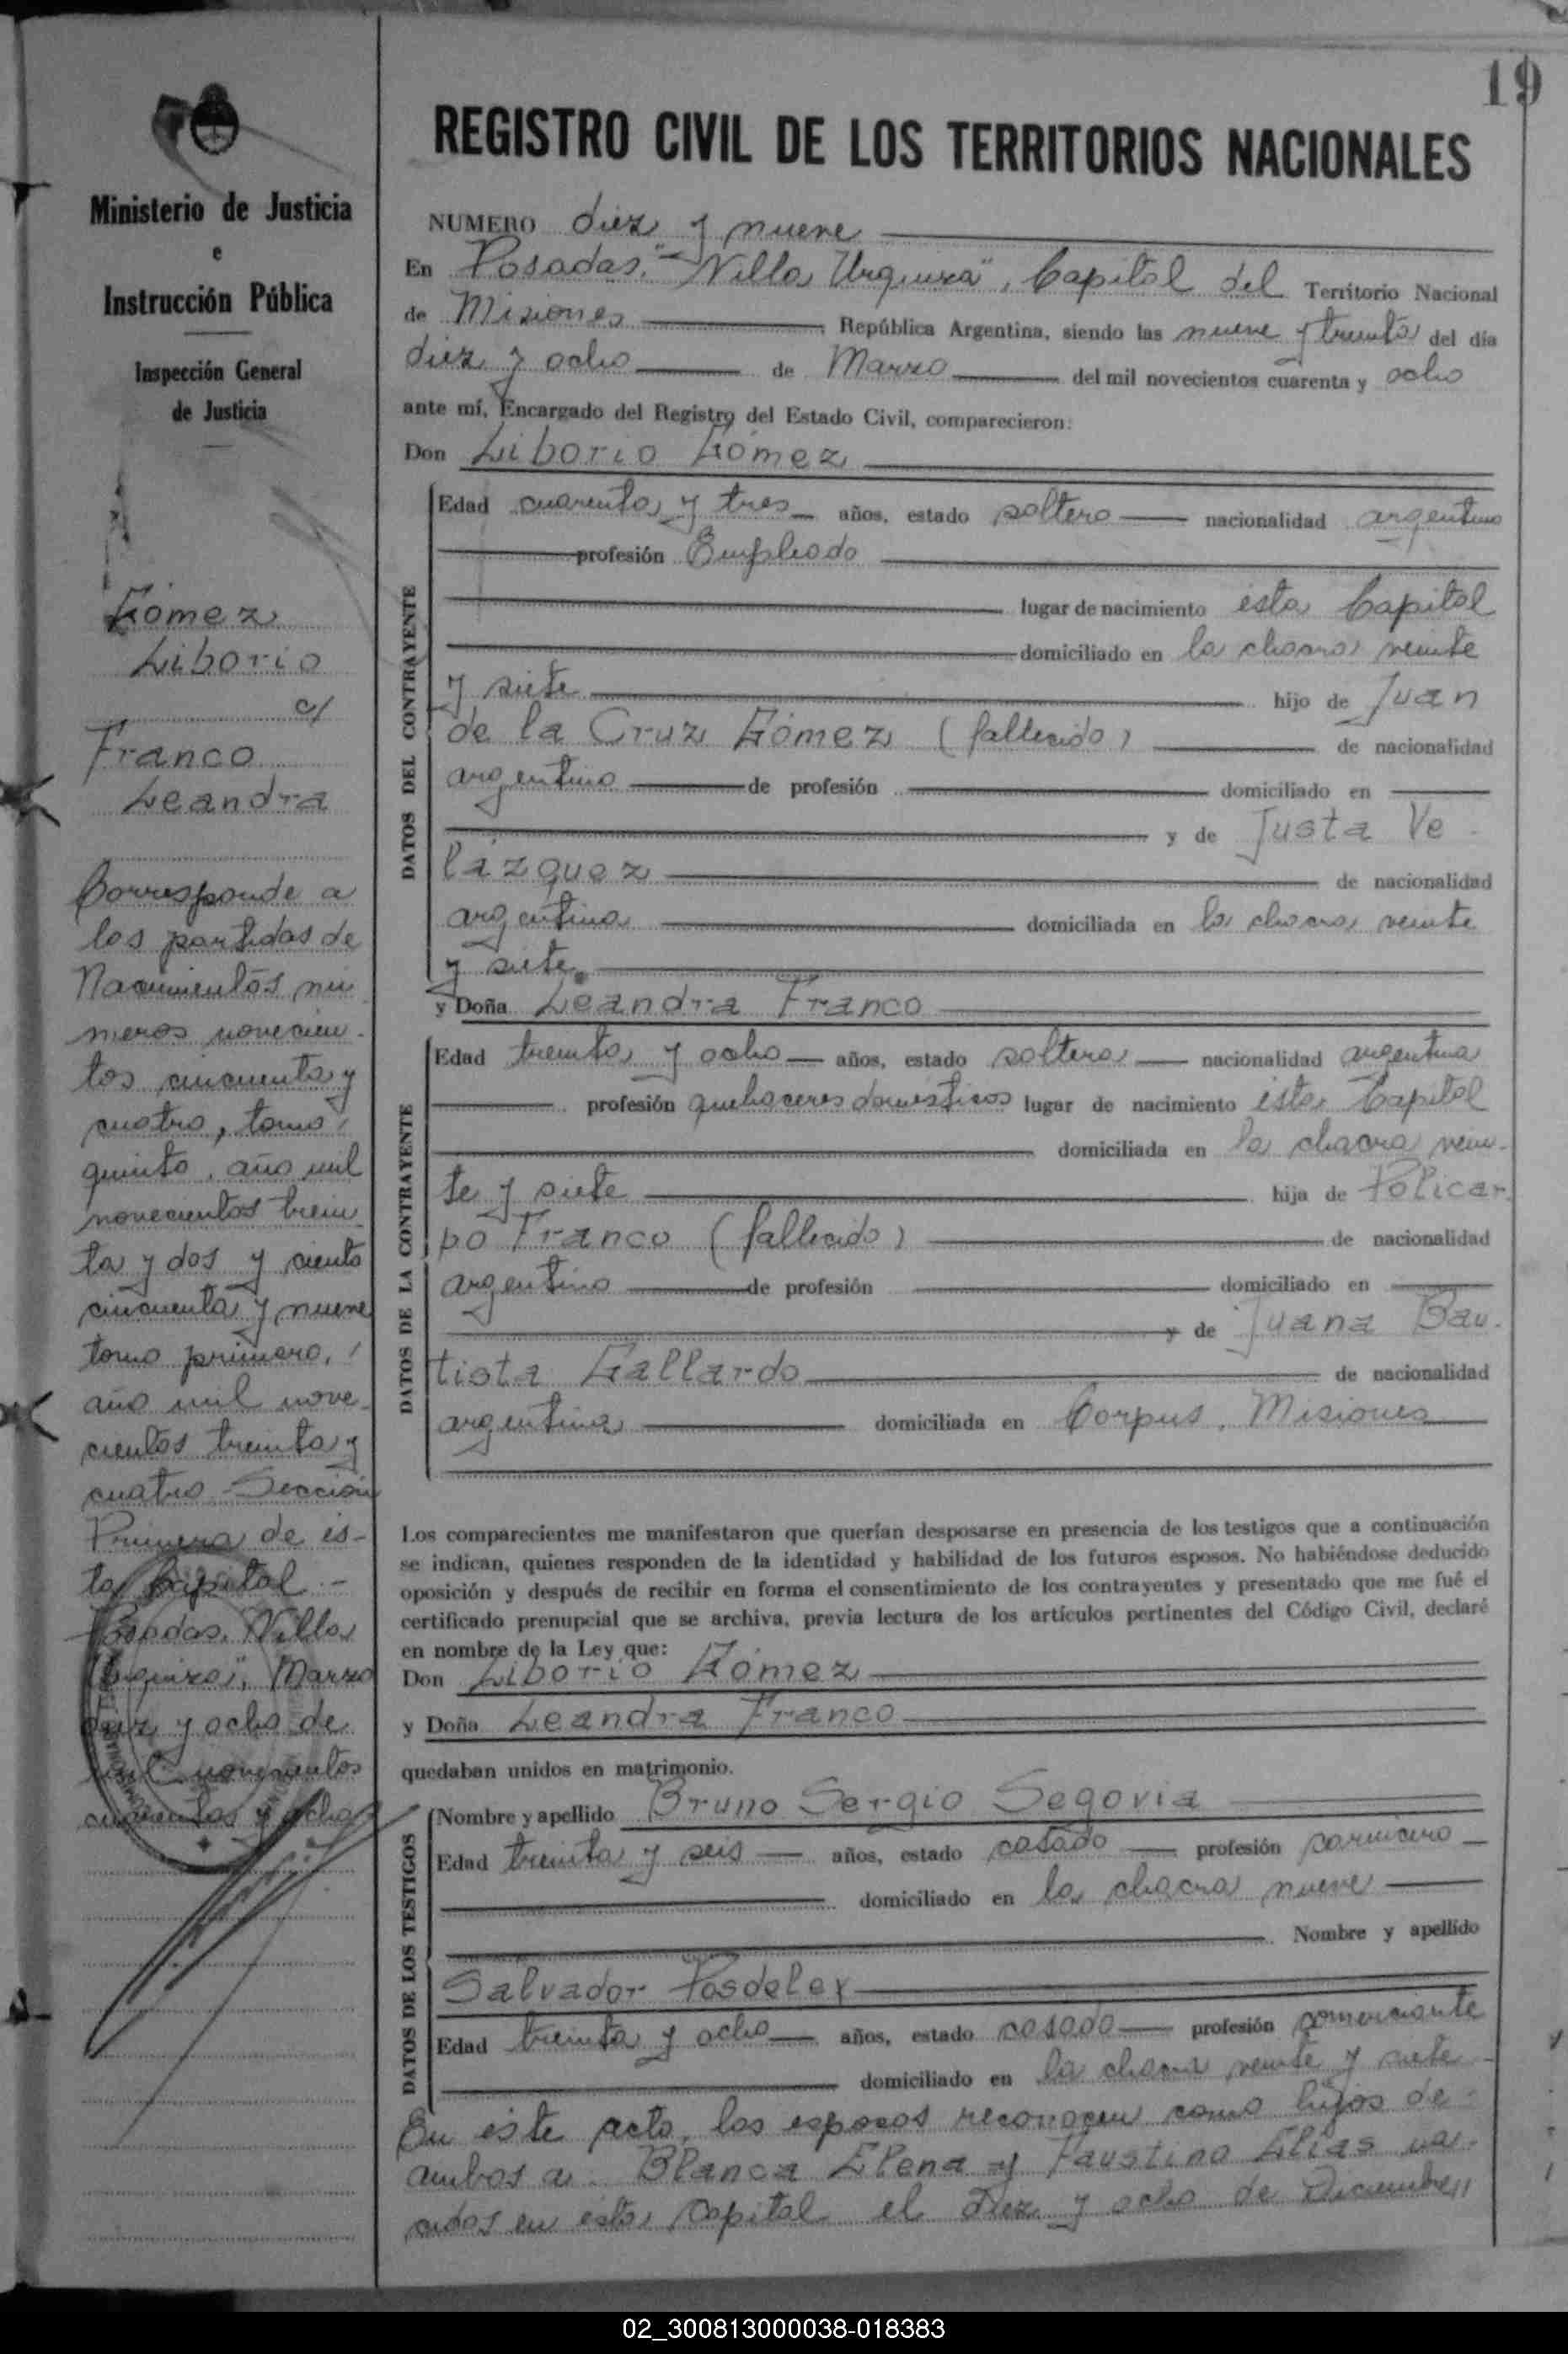 19
Ministerio de Justicia
e
Instrucción Pública
Inspección General
de Justicia
Gómez
Liborio
c/
Franco
Leandra
Corresponde a
las partidas de
Nacimientos nú
meros novecien-
tos cincuenta y
cuatro, tomo
quinto, año mil
novecientos trein-
ta y dos y ciento
cincuenta y nueve
tomo primero,
año mil nove-
cientos treinta y
cuatro - Sección
Primera de és-
ta Capital.-
Posadas, "Villa
Urquiza", Marzo
diez y ocho de
mil novecientos
cuarenta y ocho
REGISTRO CIVIL DE LOS TERRITORIOS NACIONALES
NUMERO diez y nueve
En Posadas, "Villa Urquiza", Capital del Territorio Nacional
de Misiones República Argentina, siendo las nueve y treinta del día
diez y ocho de Marzo del mil novecientos cuarenta y ocho
ante mí, Encargado del Registro del Estado Civil, comparecieron:
Don Liborio Gómez
DATOS DEL CONTRAYENTE
Edad cuarenta y tres años, estado soltero nacionalidad argentino
profesión Empleado
lugar de nacimiento ésta Capital
domiciliado en la chacra veinte
y siete hijo de Juan
de la Cruz Gómez (fallecido) de nacionalidad
argentino de profesión domiciliado en
y de Justa Ve
lázquez de nacionalidad
argentina domiciliada en la chacra veinte
y siete.
y Doña Leandra Franco
DATOS DE LA CONTRAYENTE
Edad treinta y ocho años, estado soltera nacionalidad argentina
profesión quehaceres domésticos lugar de nacimiento ésta Capital
domiciliada en la chacra vein-
te y siete hija de Policar-
po Franco (fallecido) de nacionalidad
argentino de profesión domiciliado en
y de Juana Bau-
tista Gallardo de nacionalidad
argentina domiciliada en Corpus, Misiones
Los comparecientes me manifestaron que querían desposarse en presencia de los testigos que a continuación
se indican, quienes responden de la identidad y habilidad de los futuros esposos. No habiéndose deducido
oposición y después de recibir en forma el consentimiento de los contrayentes y presentado que me fué el
certificado prenupcial que se archiva, previa lectura de los artículos pertinentes del Código Civil, declaré
en nombre de la Ley que:
Don Liborio Gómez
y Doña Leandra Franco
quedaban unidos en matrimonio.
DATOS DE LOS TESTIGOS
Nombre y apellido Bruno Sergio Segovia
Edad treinta y seis años, estado casado profesión carnicero
domiciliado en la chacra nueve
Nombre y apellido
Salvador Posdeley
Edad treinta y ocho años, estado casado profesión comerciante
domiciliado en la chacra veinte y siete
En éste acto, los esposos reconocen como hijos de
ambos a: Blanca Elena y Faustino Elias na-
cidos en ésta Capital el diez y ocho de Diciembre//
02_300813000038-018383